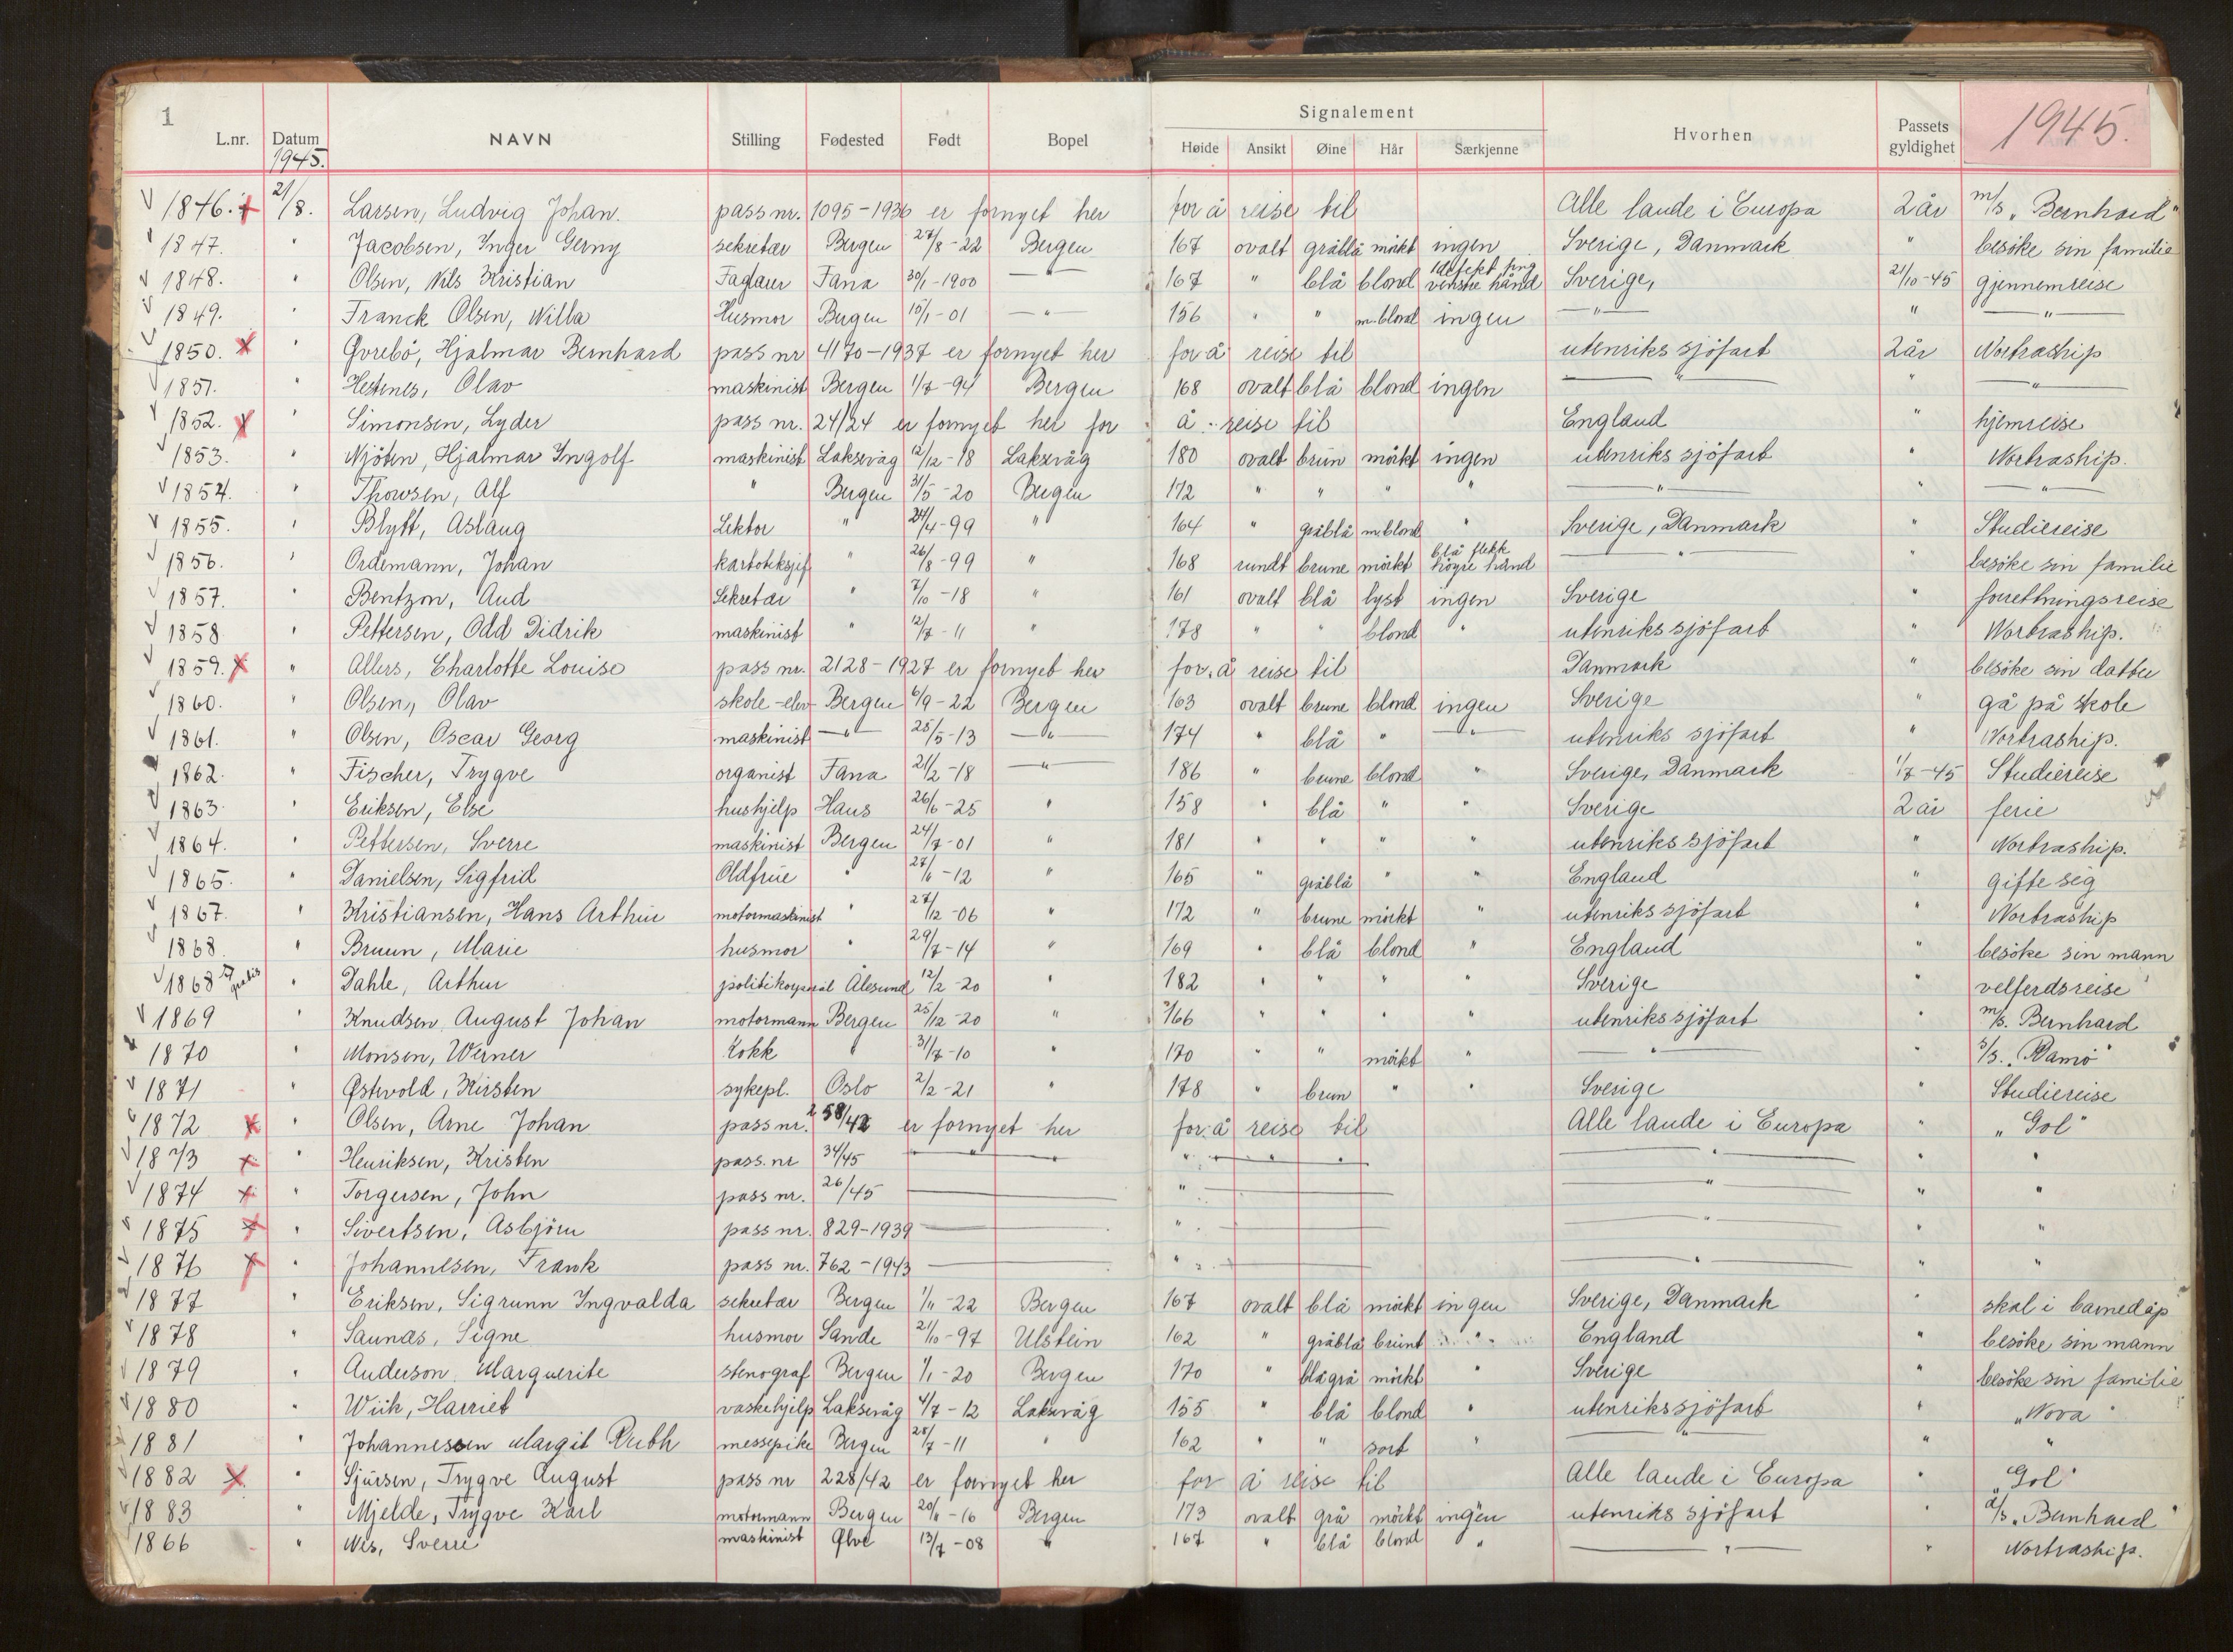 1
L.nr. Datum NAVN Stilling Fødested Født Bopel Signalement Hvorhen Passets gyldighet 1945.
1945. Høide Ansikt Øine Hår Særkjenne
V 1846. + 21/8. Larsen, Ludvig Johan. pass nr. 1095-1936 er fornyet her for å reise til Alle lande i Europa 2 år m/s „Bernhard"
V 1847. " Jacobsen, Inger Gerny sekretær Bergen 27/8-22 Bergen 167 ovalt gråblå mörkt ingen Sverige, Danmark " besöke sin familie
V 1848. " Olsen, Nils Kristian Faglærer Fana 30/1-1900 — " — 167 " blå blond 1 defekt fing venstre hånd Sverige, 21/10-45 gjennemreise
V 1849. " Franck Olsen, Willa Husmor Bergen 15/1-01 — " — 156 " " m.blond ingen — " — " — " —
V 1850. x " Övrebö, Hjalmar Bernhard pass nr 4170-1937 er fornyet her for å reise til utenriks sjöfart 2 år Nortraship
V 1851. " Hestenes, Olav maskinist Bergen 1/7-94 Bergen 168 ovalt blå blond ingen — " — " — " —
V 1852. x " Simonsen, Lyder pass nr. 24/24 er fornyet her for å reise til England " hjemreise
V 1853. " Njöten, Hjalmar Ingolf maskinist Laksevåg 12/12-18 Laksevåg 180 ovalt brün mörkt ingen utenriks sjöfart " Nortraship.
V 1854. " Thowsen, Alf " Bergen 31/5-20 Bergen 172 " " " " — " — " — " —
V 1855. " Blytt, Aslaug Lektor " 24/4-99 " 164 " gråblå m.blond " Sverige, Danmark " Studiereise
V 1856. " Ordemann, Johan kartoteksjef " 26/8-99 " 168 rundt brune mörkt blå flekk höyre hånd — " — " besöke sin familie
V 1857. " Bentzon, Aud Sekretær " 7/10-18 " 161 ovalt blå lyst ingen Sverige " forretningsreise
V 1858 " Pettersen, Odd Didrik maskinist " 12/7-11 " 178 " " blond " utenriks sjöfart " Nortraship.
V 1859. x " Allers, Charlotte Louise pass nr. 2128-1927 er fornyet her for å reise til Danmark " besöke sin datter
V 1860. " Olsen, Olav skole-elev Bergen 6/9-22 Bergen 163 ovalt brune blond ingen Sverige " gå på skole
V 1861. " Olsen, Oscar Georg maskinist — " — 25/5-13 — " — 174 " blå " — " — utenriks sjöfart " Nortraship.
1862. " Fischer, Trygve organist Fana 21/2-18 — " — 186 " brune blond " Sverige, Danmark 1/7-45 Studiereise
V 1863. " Eriksen, Else hushjelp Haus 26/6-25 " 158 " blå " " Sverige 2 år ferie
V 1864. " Pettersen, Sverre maskinist Bergen 24/7-01 " 181 " " " " utenriks sjöfart " Nortraship.
V 1865. " Danielsen, Sigfrid Oldfrue " 27/6-12 " 165 " gråblå " " England " gifte seg
V 1867. " Kristiansen, Hans Arthur motormaskinist " 27/12-06 " 172 " brune mörkt " utenriks sjöfart " Nortraship
V 1868. " Bruun, Marie husmor " 29/7-14 " 169 " blå blond " England " besöke sin mann
V 1868 gratis " Dahle, Arthur politikonstabel Ålesund 12/2-20 " 182 " " " " Sverige " velferdsreise
V 1869 " Knudsen, August Johan motormann Bergen 25/12-20 " 166 " " " " utenriks sjöfart " m/s. Bernhard
V 1870 " Monsen, Werner Kokk " 31/7-10 " 170 " " mörkt " — " — " s/s. „Ramö"
V 1871 " Østevold, Kirsten sykepl. Oslo 2/2-21 " 178 " brun " " Sverige " Studiereise
V 1872 x " Olsen, Arne Johan pass nr. 258/42 er fornyet her for å reise til Alle lande i Europa " „Gol"
V 1873 x " Henriksen, Kristen pass. nr 34/45 — " — " — " — — " — " "
V 1874 x " Torgersen, John pass nr. 26/45 — " — — " — " "
V 1875 x " Sivertsen, Asbjörn pass nr. 829-1939 — " — — " — " "
V 1876 x " Johannesen, Frank pass nr. 762-1943 — " — — " — " "
V 1877 " Eriksen, Sigrunn Ingvalda sekretær Bergen 1/11-22 Bergen 167 ovalt blå mörkt ingen Sverige, Danmark " skal i barnedåp
V 1878 " Saunås, Signe husmor Sande 21/10-97 Ulstein 162 " gråblå brünt " England " besöke sin mann
V 1879 " Anderson, Marguerite stenograf Bergen 1/1-20 Bergen 170 " blågrå mörkt " Sverige " besöke sin familie
V 1880 " Wiik, Harriet vaskehjelp Laksevåg 4/7-12 Laksevåg 155 " blå blond " utenriks sjöfart " „Nova"
1881 " Johannessen Margit Ruth messepike Bergen 28/7-11 " 162 " " sort " — " — " "
V 1882 x " Sjursen, Trygve August pass nr 228/42 er fornyet her for å reise til Alle lande i Europa " „Gol"
V 1883 " Mjelde, Trygve Karl motormann Bergen 20/11-16 Bergen 173 ovalt grå mörkt ingen utenriks sjöfart " „Bernhard"
1866 " Nes, Sverre maskinist Ølve 13/7-08 " 167 " blå blond " — " — " Nortraship.